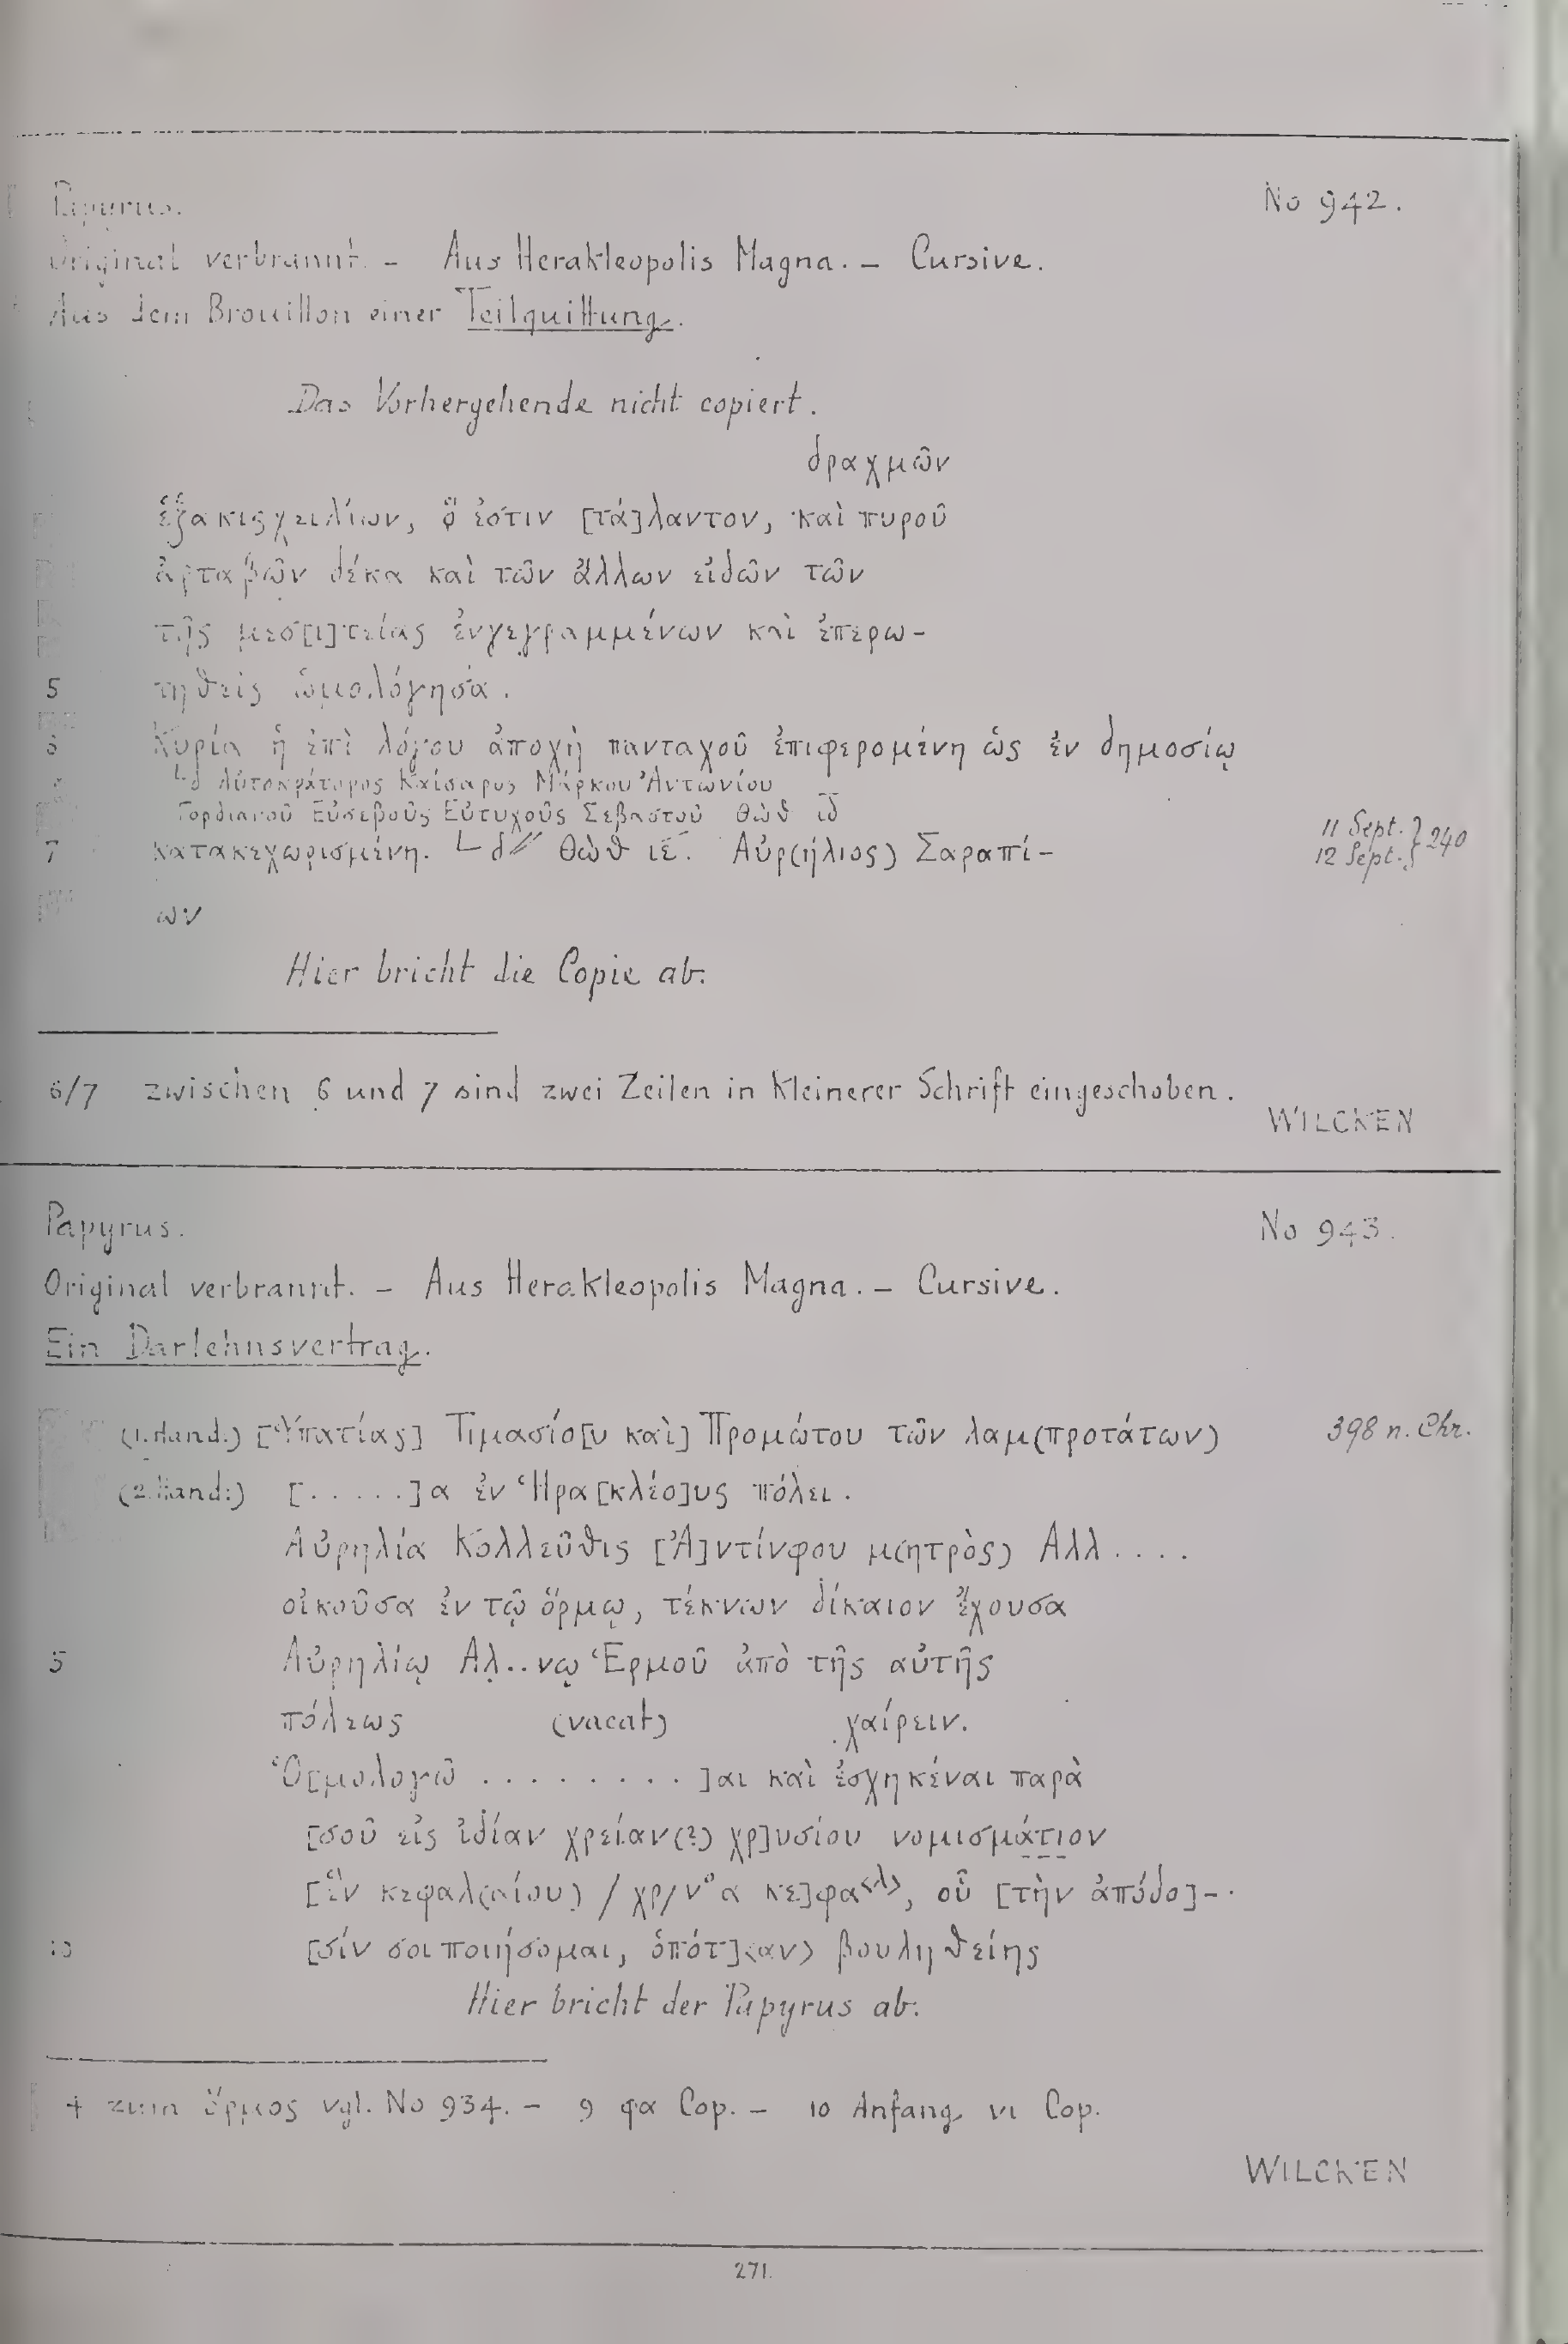 Papyrus.
No 942.
Original verbrannt. – Aus Herakleopolis Magna. – Cursive.
Aus dem Brouillon einer Teilquittung.
Das Vorhergehende nicht copiert.
δραχμῶν
ἑξακισχειλίων, ὅ ἐστιν [τά]λαντον, καὶ πυροῦ
ἀρταβῶν δέκα καὶ τῶν ἄλλων εἰδῶν τῶν
τῆς μεσ[ι]τείας ἐνγεγραμμένων καὶ ἐπερω-
5 τηθεὶς ὡμολόγησα.
6 Κυρία ἡ ἐπὶ λόγου ἀποχὴ πανταχοῦ ἐπιφερομένη ὡς ἐν δημοσίῳ
└δ Αὐτοκράτορος Καίσαρος Μάρκου Ἀντωνίου
Γορδιανοῦ Εὐσεβοῦς Εὐτυχοῦς Σεβαστοῦ Θὼθ ιδ̅
7 κατακεχωρισμένη. └δ// Θὼθ ιε̅. Αὐρ(ήλιος) Σαραπί-
11 Sept. } 240
12 Sept. }
ων
Hier bricht die Copie ab.
6/7 zwischen 6 und 7 sind zwei Zeilen in kleinerer Schrift eingeschoben.
WILCKEN
Papyrus.
No 943.
Original verbrannt. – Aus Herakleopolis Magna. – Cursive.
Ein Darlehnsvertrag.
(1. Hand.) [Ὑπατίας] Τιμασίο[υ καὶ] Προμώτου τῶν λαμ(προτάτων)
398 n. Chr.
(2. Hand:) [.....]α ἐν Ἡρα[κλέο]υς πόλει.
Αὐρηλία Κολλεῦθις [Ἀ]ντίνφου μ(ητρὸς) Αλλ....
οἰκοῦσα ἐν τῷ ὅρμῳ, τέκνων δίκαιον ἔχουσα
5 Αὐρηλίῳ Αλ̣..νῳ Ἑρμοῦ ἀπὸ τῆς αὐτῆς
πόλεως (vacat) χαίρειν.
Ὁ[μολογῶ .........]αι καὶ ἐσχηκέναι παρὰ
[σοῦ εἰς ἰδίαν χρείαν(?) χρ]υσίου νομισμάτιον
[ἓν κεφαλ(αίου) / χρ/ν°α κε]φα<λ>, οὗ [τὴν ἀπόδο]-
10 [σίν σοι ποιήσομαι, ὁπότ]<αν> βουληθείης
Hier bricht der Papyrus ab.
4 zum ὅρμος vgl. No 934. – 9 φα Cop. – 10 Anfang νι Cop.
WILCKEN
271.